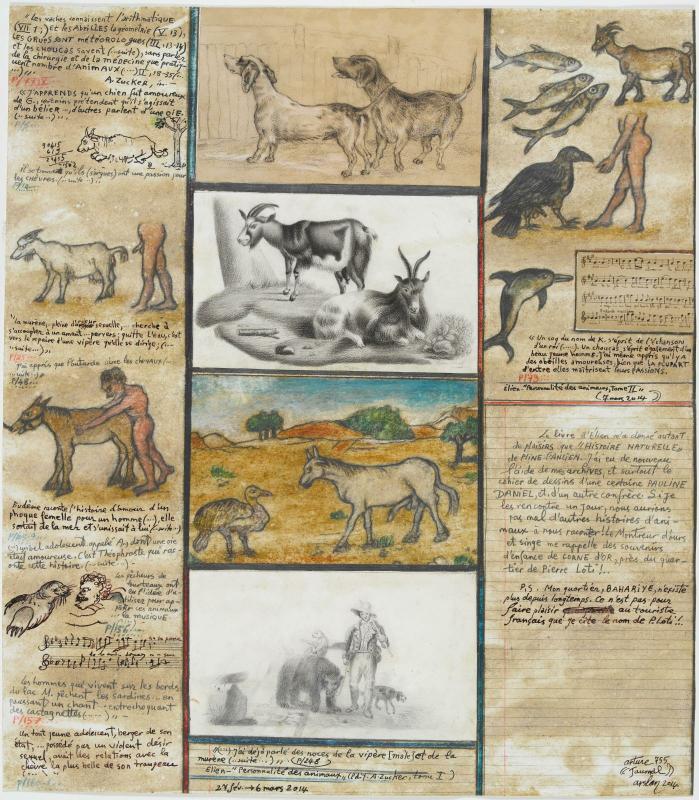 "Les vaches connaissent l'arithmétique
(VII 1,) et les ABEILLES la géométrie (V, 13),
LES GRUES SONT météorologues (III, 13-14)
et les CHOUCAS savent (...suite), sans parler
de la chirurgie et de la médecine que pratiquent
nombre d'Animaux (...) II, 18-35/...
...)",,
A. ZUCKER,
"J'APPRENDS qu'un chien fut amoureux
de G., certains prétendent qu'il s'agissait
d'un bélier..., d'autres parlent d'une OIE.
(...suite...)",
ont une passion pour
les chèvres (...suite...)",
"la murène, pleine sexuelle,... cherche à
s'accoupler à un amant... pervers: quitte l'eau, c'est
vers le repaire d'une vipère qu'elle se dirige; (...
...suite...)",
P/25
j'ai appris que l'outarde aime les chevaux/...
P/48
Eudème raconte l'histoire d'amour d'un
phoque femelle pour un homme (...), elle
sortait de la mer et s'unissait à lui (...suite...)
bel adolescent appelé dont une oie
était amoureuse. C'est Théophraste qui raconte
cette histoire (...suite...)
les pêcheurs de
tourteaux ont
eu l'idée d'utiliser
pour appâter
ces animaux
la MUSIQUE
P/156
Les hommes qui vivent sur les bords
du lac M. pêchent les sardines... en
poussant un chant... entrechoquant
des castagnettes (...)" -
P/157
Un tout jeune adolescent, berger de son
état,... possédé par un violent désir
sexuel, avait des relations avec la
chèvre la plus belle de son troupeau
(...)",
"(...) j'ai déjà parlé des noces de la vipère [mâle] et de la
murène (...suite...)" (P/248)
Élien - "Personnalité des animaux," (édit. A. Zucker, tome I)
27 fév. → 6 mars 2014
"Un coq du nom de K. s'éprit de l'échanson
d'un roi (...). Un choucas s'éprit également d'un
beau jeune homme. J'ai même appris qu'il y a
des abeilles amoureuses, bien que la PLUPART
d'entre elles maîtrisent leurs PASSIONS.
P/73
Élien - "Personnalité des animaux, Tome II"
(7 mars 2014)
Le livre d'Élien m'a donné autant
de plaisirs que "L'HISTOIRE NATURELLE"
de PLINE-L'ANCIEN. J'ai eu de nouveau
l'aide de mes archives, et surtout le
cahier de dessins d'une certaine PAULINE
DANIEL, et d'un autre confrère. Si je
les rencontre un jour, nous aurions
pas mal d'autres histoires d'animaux
à nous raconter. Le Montreur d'ours
et singe me rappelle des souvenirs
d'enfance de CORNE D'OR, près du quartier
de Pierre Loti!..
P.S. Mon quartier, BAHARIYE, n'existe
plus depuis longtemps. Ce n'est pas pour
faire plaisir au touriste
français que je cite le nom de P. Loti!..
arture 755
("Journal")
arslan 2014